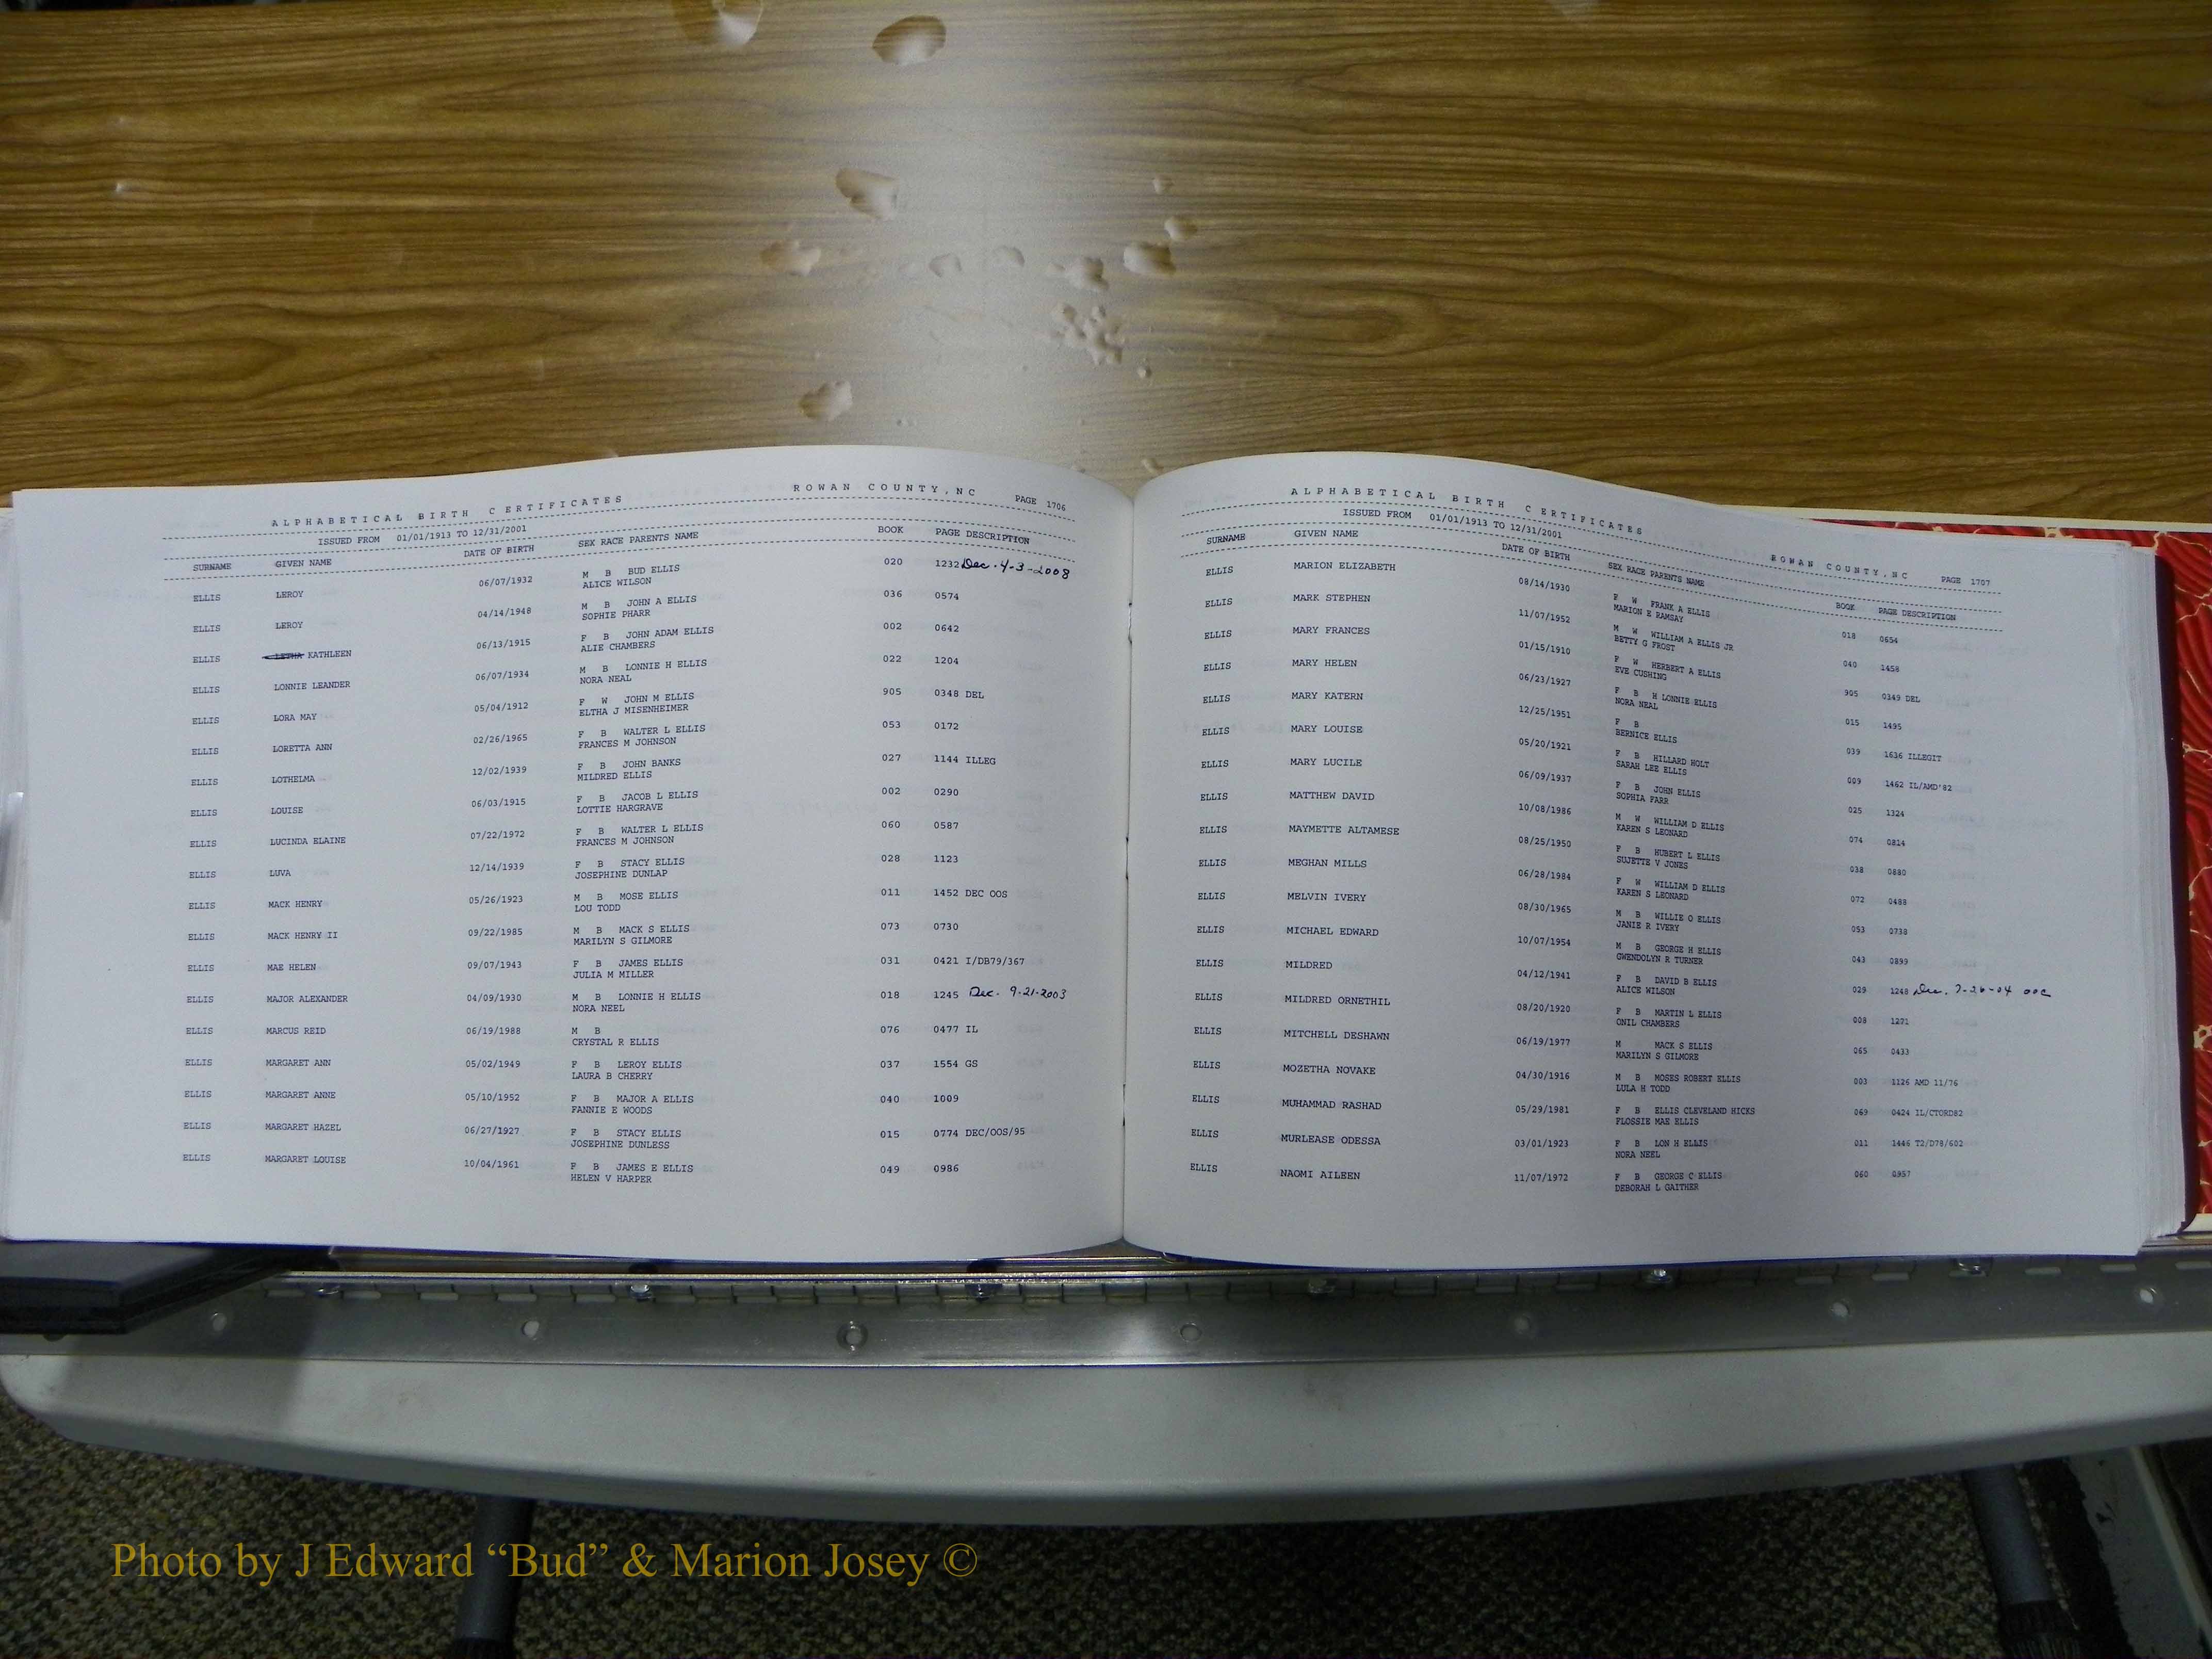 ALPHABETICAL BIRTH CERTIFICATES ROWAN COUNTY,NC PAGE 1706
ISSUED FROM 01/01/1913 TO 12/31/2001
SURNAME GIVEN NAME DATE OF BIRTH SEX RACE PARENTS NAME BOOK PAGE DESCRIPTION
ELLIS LEROY 06/07/1932 M B BUD ELLIS 020 1232 Dec. 4-3-2008
ALICE WILSON
ELLIS LEROY 04/14/1948 M B JOHN A ELLIS 036 0574
SOPHIE PHARR
ELLIS LETHA KATHLEEN 06/13/1915 F B JOHN ADAM ELLIS 002 0642
ALIE CHAMBERS
ELLIS LONNIE LEANDER 06/07/1934 M B LONNIE H ELLIS 022 1204
NORA NEAL
ELLIS LORA MAY 05/04/1912 F W JOHN M ELLIS 905 0348 DEL
ELTHA J MISENHEIMER
ELLIS LORETTA ANN 02/26/1965 F B WALTER L ELLIS 053 0172
FRANCES M JOHNSON
ELLIS LOTHELMA 12/02/1939 F B JOHN BANKS 027 1144 ILLEG
MILDRED ELLIS
ELLIS LOUISE 06/03/1915 F B JACOB L ELLIS 002 0290
LOTTIE HARGRAVE
ELLIS LUCINDA ELAINE 07/22/1972 F B WALTER L ELLIS 060 0587
FRANCES M JOHNSON
ELLIS LUVA 12/14/1939 F B STACY ELLIS 028 1123
JOSEPHINE DUNLAP
ELLIS MACK HENRY 05/26/1923 M B MOSE ELLIS 011 1452 DEC OOS
LOU TODD
ELLIS MACK HENRY II 09/22/1985 M B MACK S ELLIS 073 0730
MARILYN S GILMORE
ELLIS MAE HELEN 09/07/1943 F B JAMES ELLIS 031 0421 I/DB79/367
JULIA M MILLER
ELLIS MAJOR ALEXANDER 04/09/1930 M B LONNIE H ELLIS 018 1245 Dec. 9-21-2003
NORA NEEL
ELLIS MARCUS REID 06/19/1988 M B 076 0477 IL
CRYSTAL R ELLIS
ELLIS MARGARET ANN 05/02/1949 F B LEROY ELLIS 037 1554 GS
LAURA B CHERRY
ELLIS MARGARET ANNE 05/10/1952 F B MAJOR A ELLIS 040 1009
FANNIE E WOODS
ELLIS MARGARET HAZEL 06/27/1927 F B STACY ELLIS 015 0774 DEC/OOS/95
JOSEPHINE DUNLESS
ELLIS MARGARET LOUISE 10/04/1961 F B JAMES E ELLIS 049 0986
HELEN V HARPER
ALPHABETICAL BIRTH CERTIFICATES ROWAN COUNTY,NC PAGE 1707
ISSUED FROM 01/01/1913 TO 12/31/2001
SURNAME GIVEN NAME DATE OF BIRTH SEX RACE PARENTS NAME BOOK PAGE DESCRIPTION
ELLIS MARION ELIZABETH 08/14/1930 F W FRANK A ELLIS 018 0654
MARION E RAMSAY
ELLIS MARK STEPHEN 11/07/1952 M W WILLIAM A ELLIS JR 040 1458
BETTY G FROST
ELLIS MARY FRANCES 01/15/1910 F W HERBERT A ELLIS 905 0349 DEL
EVE CUSHING
ELLIS MARY HELEN 06/23/1927 F B H LONNIE ELLIS 015 1495
NORA NEAL
ELLIS MARY KATERN 12/25/1951 F B 039 1636 ILLEGIT
BERNICE ELLIS
ELLIS MARY LOUISE 05/20/1921 F B HILLARD HOLT 009 1462 IL/AMD'82
SARAH LEE ELLIS
ELLIS MARY LUCILE 06/09/1937 F B JOHN ELLIS 025 1324
SOPHIA FARR
ELLIS MATTHEW DAVID 10/08/1986 M W WILLIAM D ELLIS 074 0814
KAREN S LEONARD
ELLIS MAYMETTE ALTAMESE 08/25/1950 F B HUBERT L ELLIS 038 0880
SUJETTE V JONES
ELLIS MEGHAN MILLS 06/28/1984 F W WILLIAM D ELLIS 072 0488
KAREN S LEONARD
ELLIS MELVIN IVERY 08/30/1965 M B WILLIE O ELLIS 053 0738
JANIE R IVERY
ELLIS MICHAEL EDWARD 10/07/1954 M B GEORGE H ELLIS 043 0899
GWENDOLYN R TURNER
ELLIS MILDRED 04/12/1941 F B DAVID B ELLIS 029 1248 Dec. 7-26-04
ALICE WILSON
ELLIS MILDRED ORNETHIL 08/20/1920 F B MARTIN L ELLIS 008 1271
ONIL CHAMBERS
ELLIS MITCHELL DESHAWN 06/19/1977 M MACK S ELLIS 065 0433
MARILYN S GILMORE
ELLIS MOZETHA NOVAKE 04/30/1916 M B MOSES ROBERT ELLIS 003 1126 AMD 11/76
LULA H TODD
ELLIS MUHAMMAD RASHAD 05/29/1981 F B ELLIS CLEVELAND HICKS 069 0424 IL/CTORD82
FLOSSIE MAE ELLIS
ELLIS MURLEASE ODESSA 03/01/1923 F B LON H ELLIS 011 1446 T2/D78/602
NORA NEEL
ELLIS NAOMI AILEEN 11/07/1972 F B GEORGE C ELLIS 060 0957
DEBORAH L GAITHER
Photo by J Edward “Bud” & Marion Josey ©